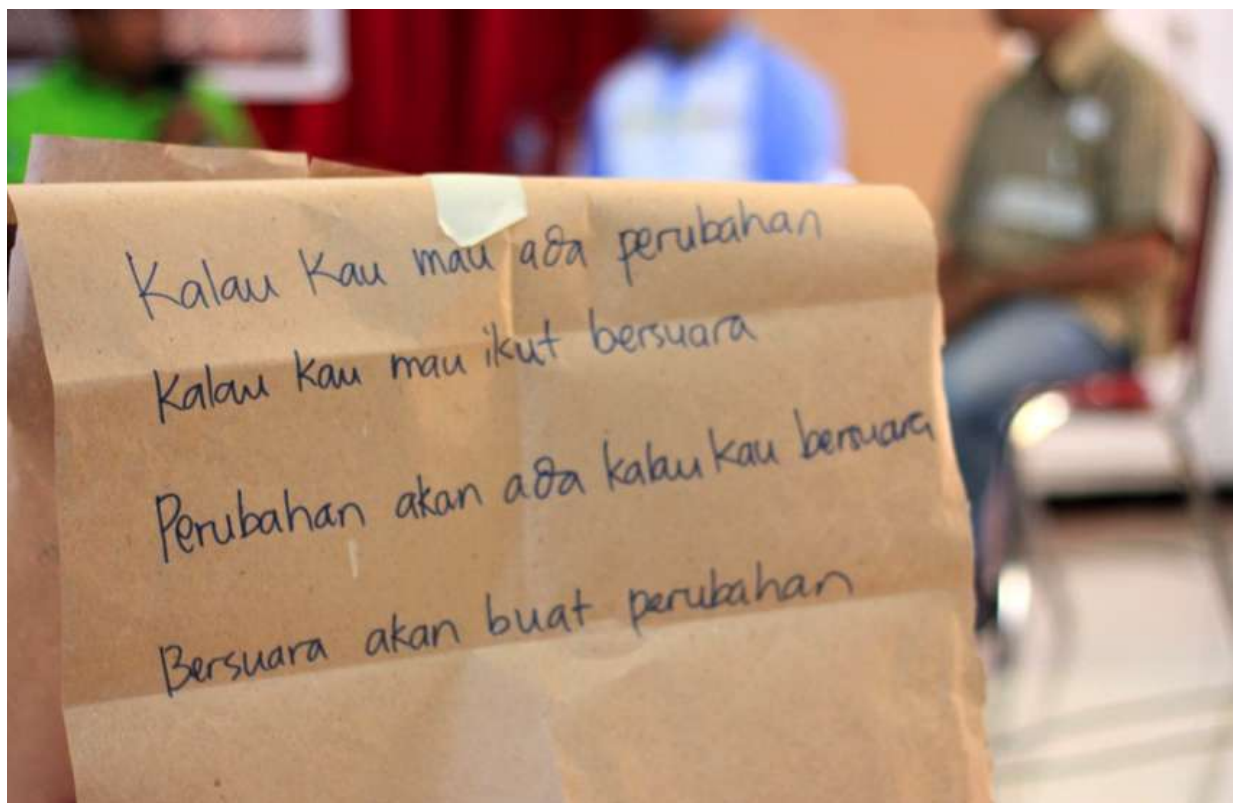 Kalau Kau mau ada perubahan
Kalau Kau mau ikut bersuara
Perubahan akan ada kalau kau bersuara
Bersuara akan buat perubahan